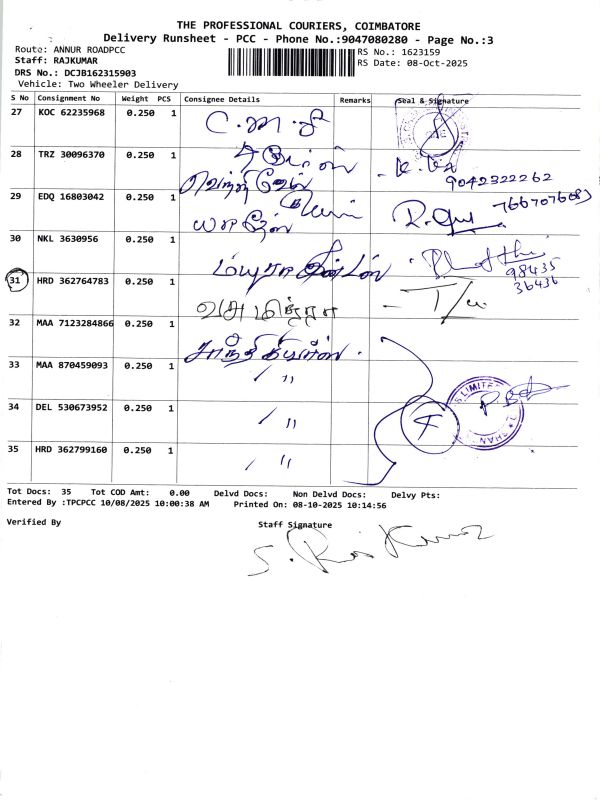 THE PROFESSIONAL COURIERS, COIMBATORE
Delivery Runsheet - PCC - Phone No.:9047080280 - Page No.:3
Route: ANNUR ROADPCC RS No.: 1623159
Staff: RAJKUMAR RS Date: 08-Oct-2025
DRS No.: DCJB162315903
Vehicle: Two Wheeler Delivery
S No Consignment No Weight PCS Consignee Details Remarks Seal & Signature
27 KOC 62235968 0.250 1
28 TRZ 30096370 0.250 1
9042322262
29 EDQ 16803042 0.250 1
30 NKL 3630956 0.250 1
98435
36436
31 HRD 362764783 0.250 1
32 MAA 7123284866 0.250 1
33 MAA 870459093 0.250 1 "
34 DEL 530673952 0.250 1 "
35 HRD 362799160 0.250 1 "
Tot Docs: 35 Tot COD Amt: 0.00 Delvd Docs: Non Delvd Docs: Delvy Pts:
Entered By :TPCPCC 10/08/2025 10:00:38 AM Printed On: 08-10-2025 10:14:56
Verified By Staff Signature
S. Raj Kumar